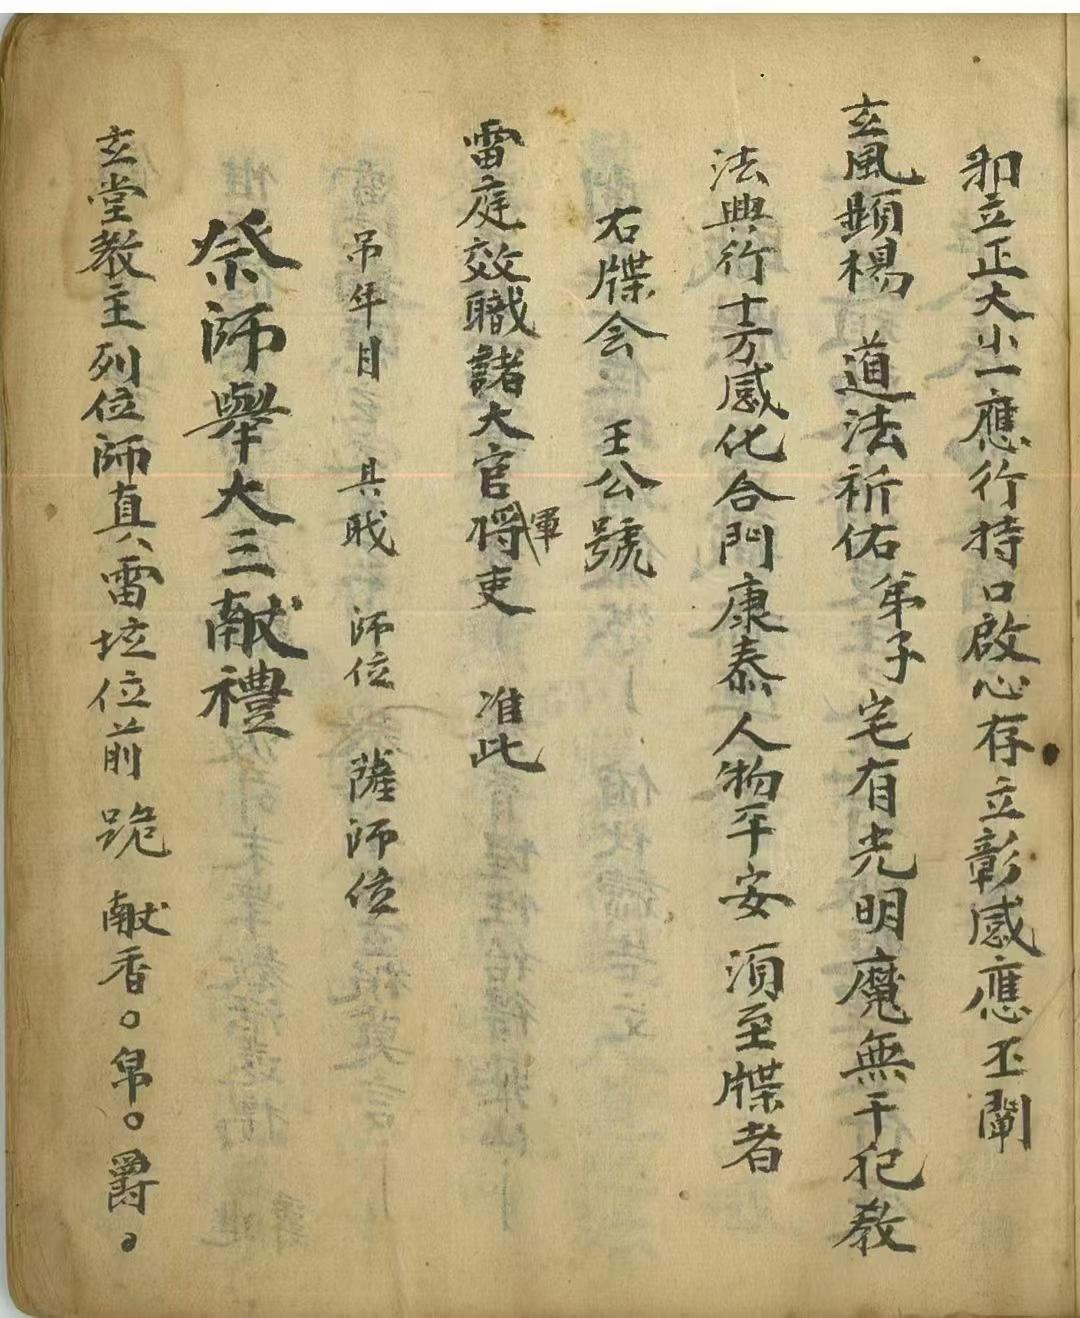 和立正大小一應行持口啟心存立彰感應丕闡
玄風顯楊 道法祈佑弟子宅有光明魔無干犯教
法興行十方感化合門康泰人物平安 須至牒者
右牒会 王公號
雷庭效職諸大官將軍吏 准此
吊年目 具戝 師位 薩師位
祭師舉大三献禮
玄堂教主列位師真雷坛位前 跪 献香。帛。爵。